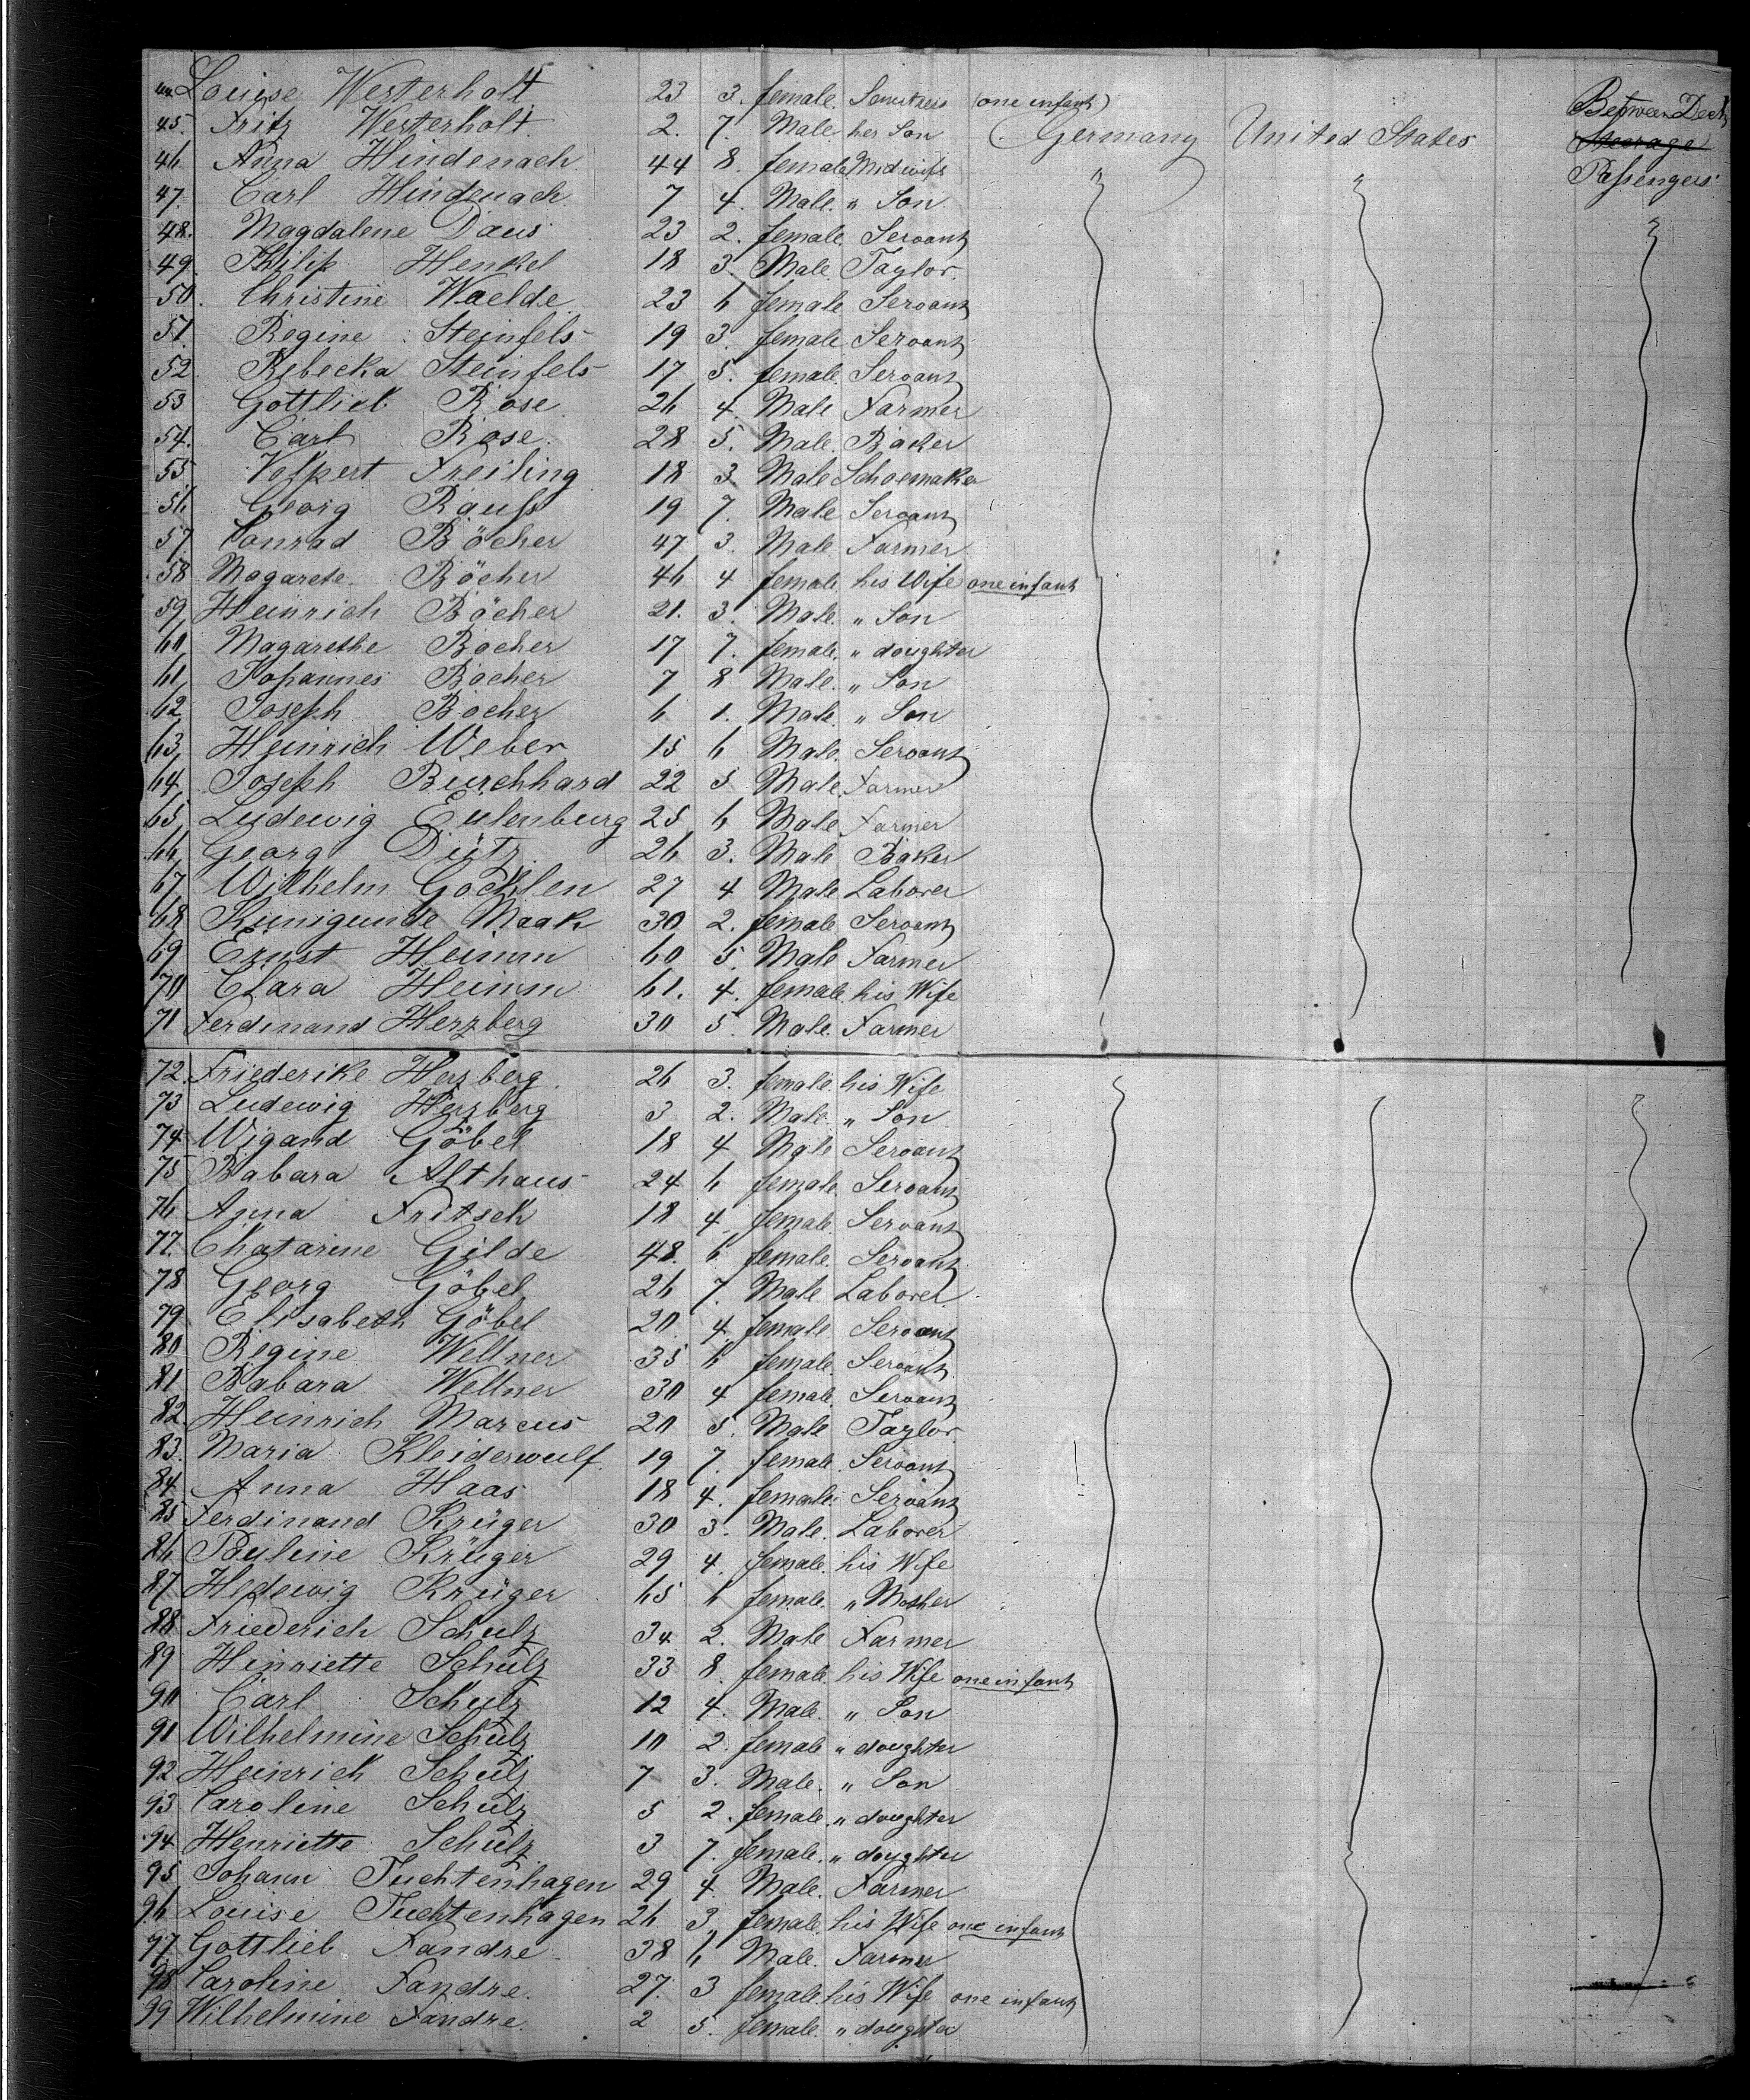 44. Louise Westerholt 23 3. female. (one infant)
45. Fritz Westerholt. 2. 7. Male her Son Germany United States Between Deck
46 Anna Hindenach 44 8. female Midwifs Steerage
47. Carl Hindenach 7 4. Male. " Son Passengers
48. Magdalene Daus 23 2. female. Servant
49. Philip Henkel 18 3. Male. Taylor.
50. Christine Waelde 23 6 female Servant
51. Regine Steinfels 19 3. female Servant
52. Rebecka Steinfels 17 5. female. Servant
53 Gottlieb Rose 26 4. Male Farmer
54. Carl Rose. 28 5. Male. Baker
55. Volpert Freiling 18 3 Male Schoemaker
56 Georg Rauß 19 7. Male Servant
57 Conrad Böcher 47 3. Male. Farmer.
58 Magarete. Böcher 46 4 female his Wife one infant
59 Heinrich Böcher 21. 3. Male. " Son
60 Magarethe Bocher 17 7. female. " doughter
61 Johannes Bocher 7 8 Male. " Son
62 Joseph Bocher 6 1. Male. " Son
63 Heinrich Weber 15 6 Male. Servant
64 Joseph Burchhard 22 5 Male. Farmer
65 Ludewig Eulenburg 25 6 Male Farmer
66 Georg Dietz 26 3. Male Baker
67 Wilhelm 27 4 Male Laborer
68 Kunigunde Maak 30 2. female Servant
69 Ernst Heimm 60 5. Male Farmer
70 Clara Heimm 61. 4. female his Wife
71 Ferdinand Herzberg 30 5. Male. Farmer
72. Friederike Herzberg 26 3. female his Wife
73 Ludewig Herzberg 3 2. Male " Son
74 Wigand Göbel 18 4 Male Servant
75 Babara Althaus 24 6 female. Servant
76 Anna Fritsch 18 4 female. Servant
77. Chatarine Gilde 48. 6 female. Servant
78 Georg Göbel 26 7. Male Laborer
79 Elisabeth Göbel 20. 4. female. Servant
80 Regine Wellner 35 6 female. Servant
81 Babara Wellner 30 4 female. Servant
82. Heinrich Marcus 20 5. Male Taylor
83. Maria Kleiderwulf. 19 7. female. Servant
84 Anna Haas 18 4. female. Servant
85 Ferdinand Krüger 30 3. Male. Laborer
86 Pauline Krüger 29 4. female. his Wife
87 Hedewig Krüger 65 6 female. " Mother
88 Friederich Schulz 34 2. Male Farmer
89 Henriette Schulz 33 8. female. his Wife one infant
90 Carl Schulz 12 4. Male. " Son
91 Wilhelmine Schulz 10 2. female " doughter
92 Heinrich Schulz 7 3. Male. " Son
93 Caroline Schulz 5 2. female. " doughter
94 Henriette Schulz 3 7. female. " doughter
95 Johann Tuchtenhagen 29 4. Male. Farmer
96 Louise Tuchtenhagen 26 3 female. his Wife one infant
97 Gottlieb Fandre 38 6 Male. Farmer
98 Caroline Fandre. 27. 3 female. his Wife one infant
99 Wilhelmine Fandre 2 5. female. " doughter